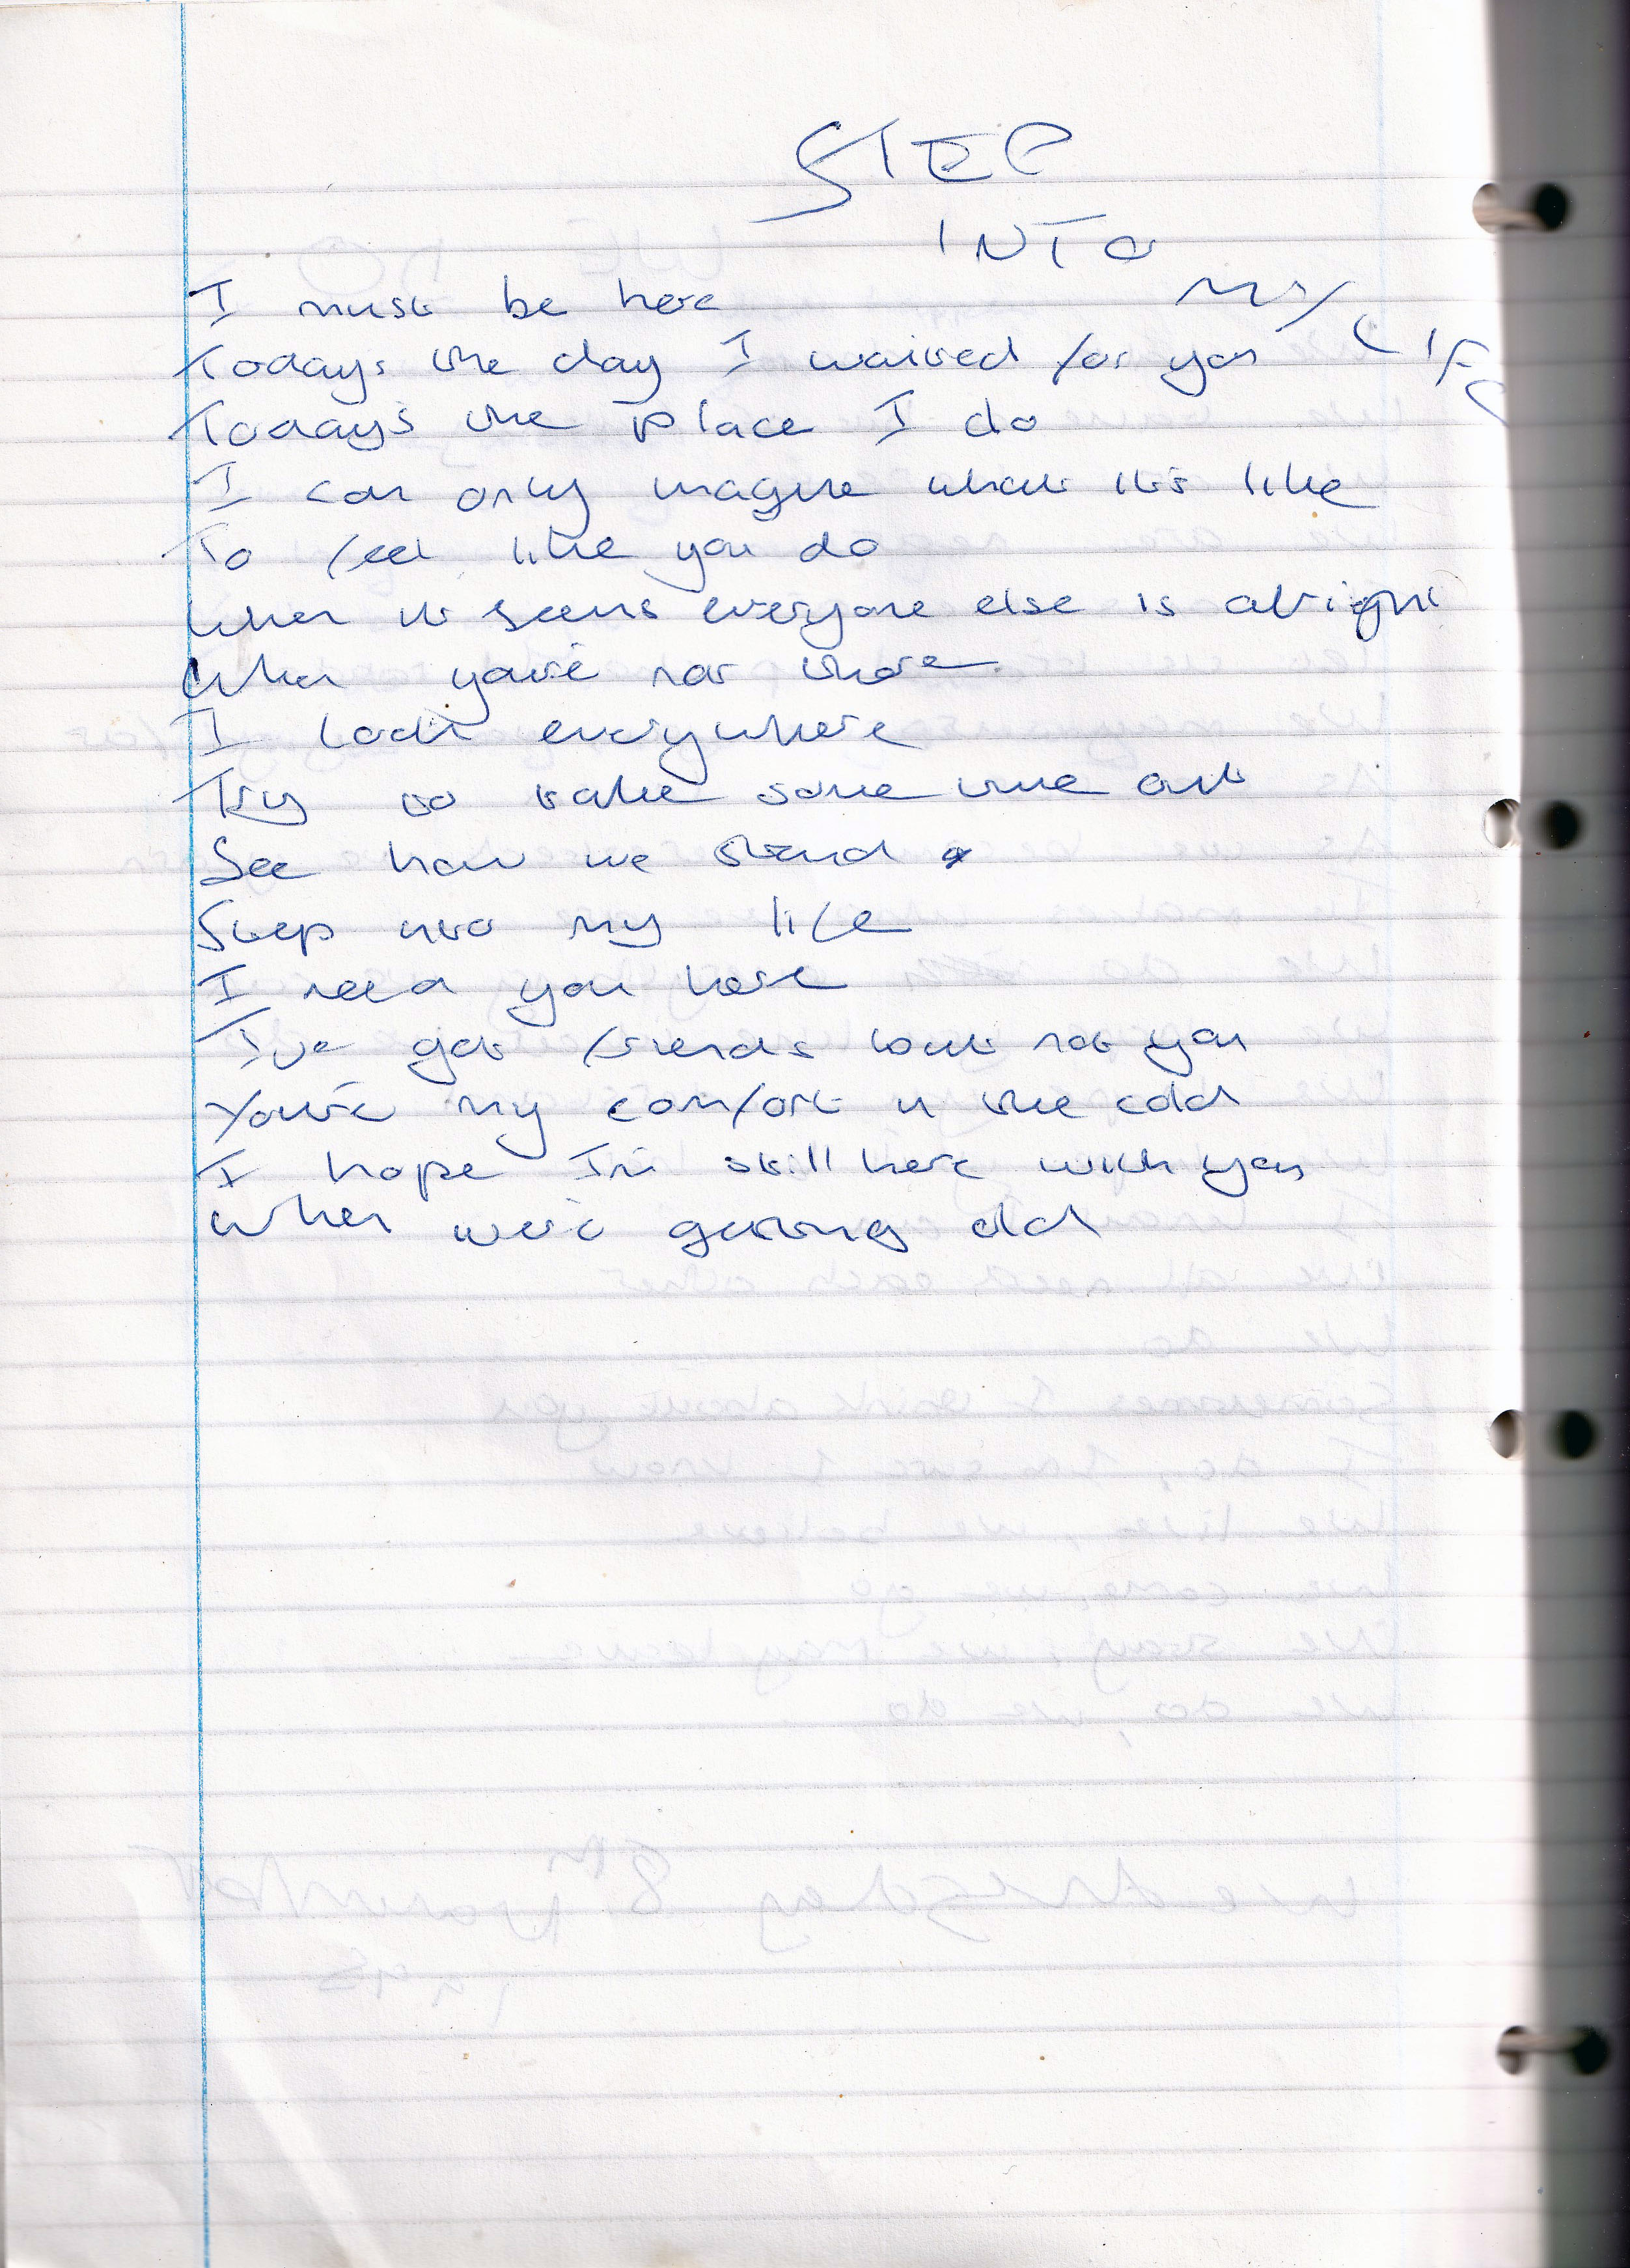 STEP
INTO
MY
LIFE
I must be here
Todays the day I waited for you
Today's the place I do
I can only imagine what it's like
To feel like you do
When it seems everyone else is alright
When you're not there
I look everywhere
Try to take some time out
See how we stand
Step into my life
I need you here
I've got friends but not you
You're my comfort in the cold
I hope I'm still here with you
When we're getting old